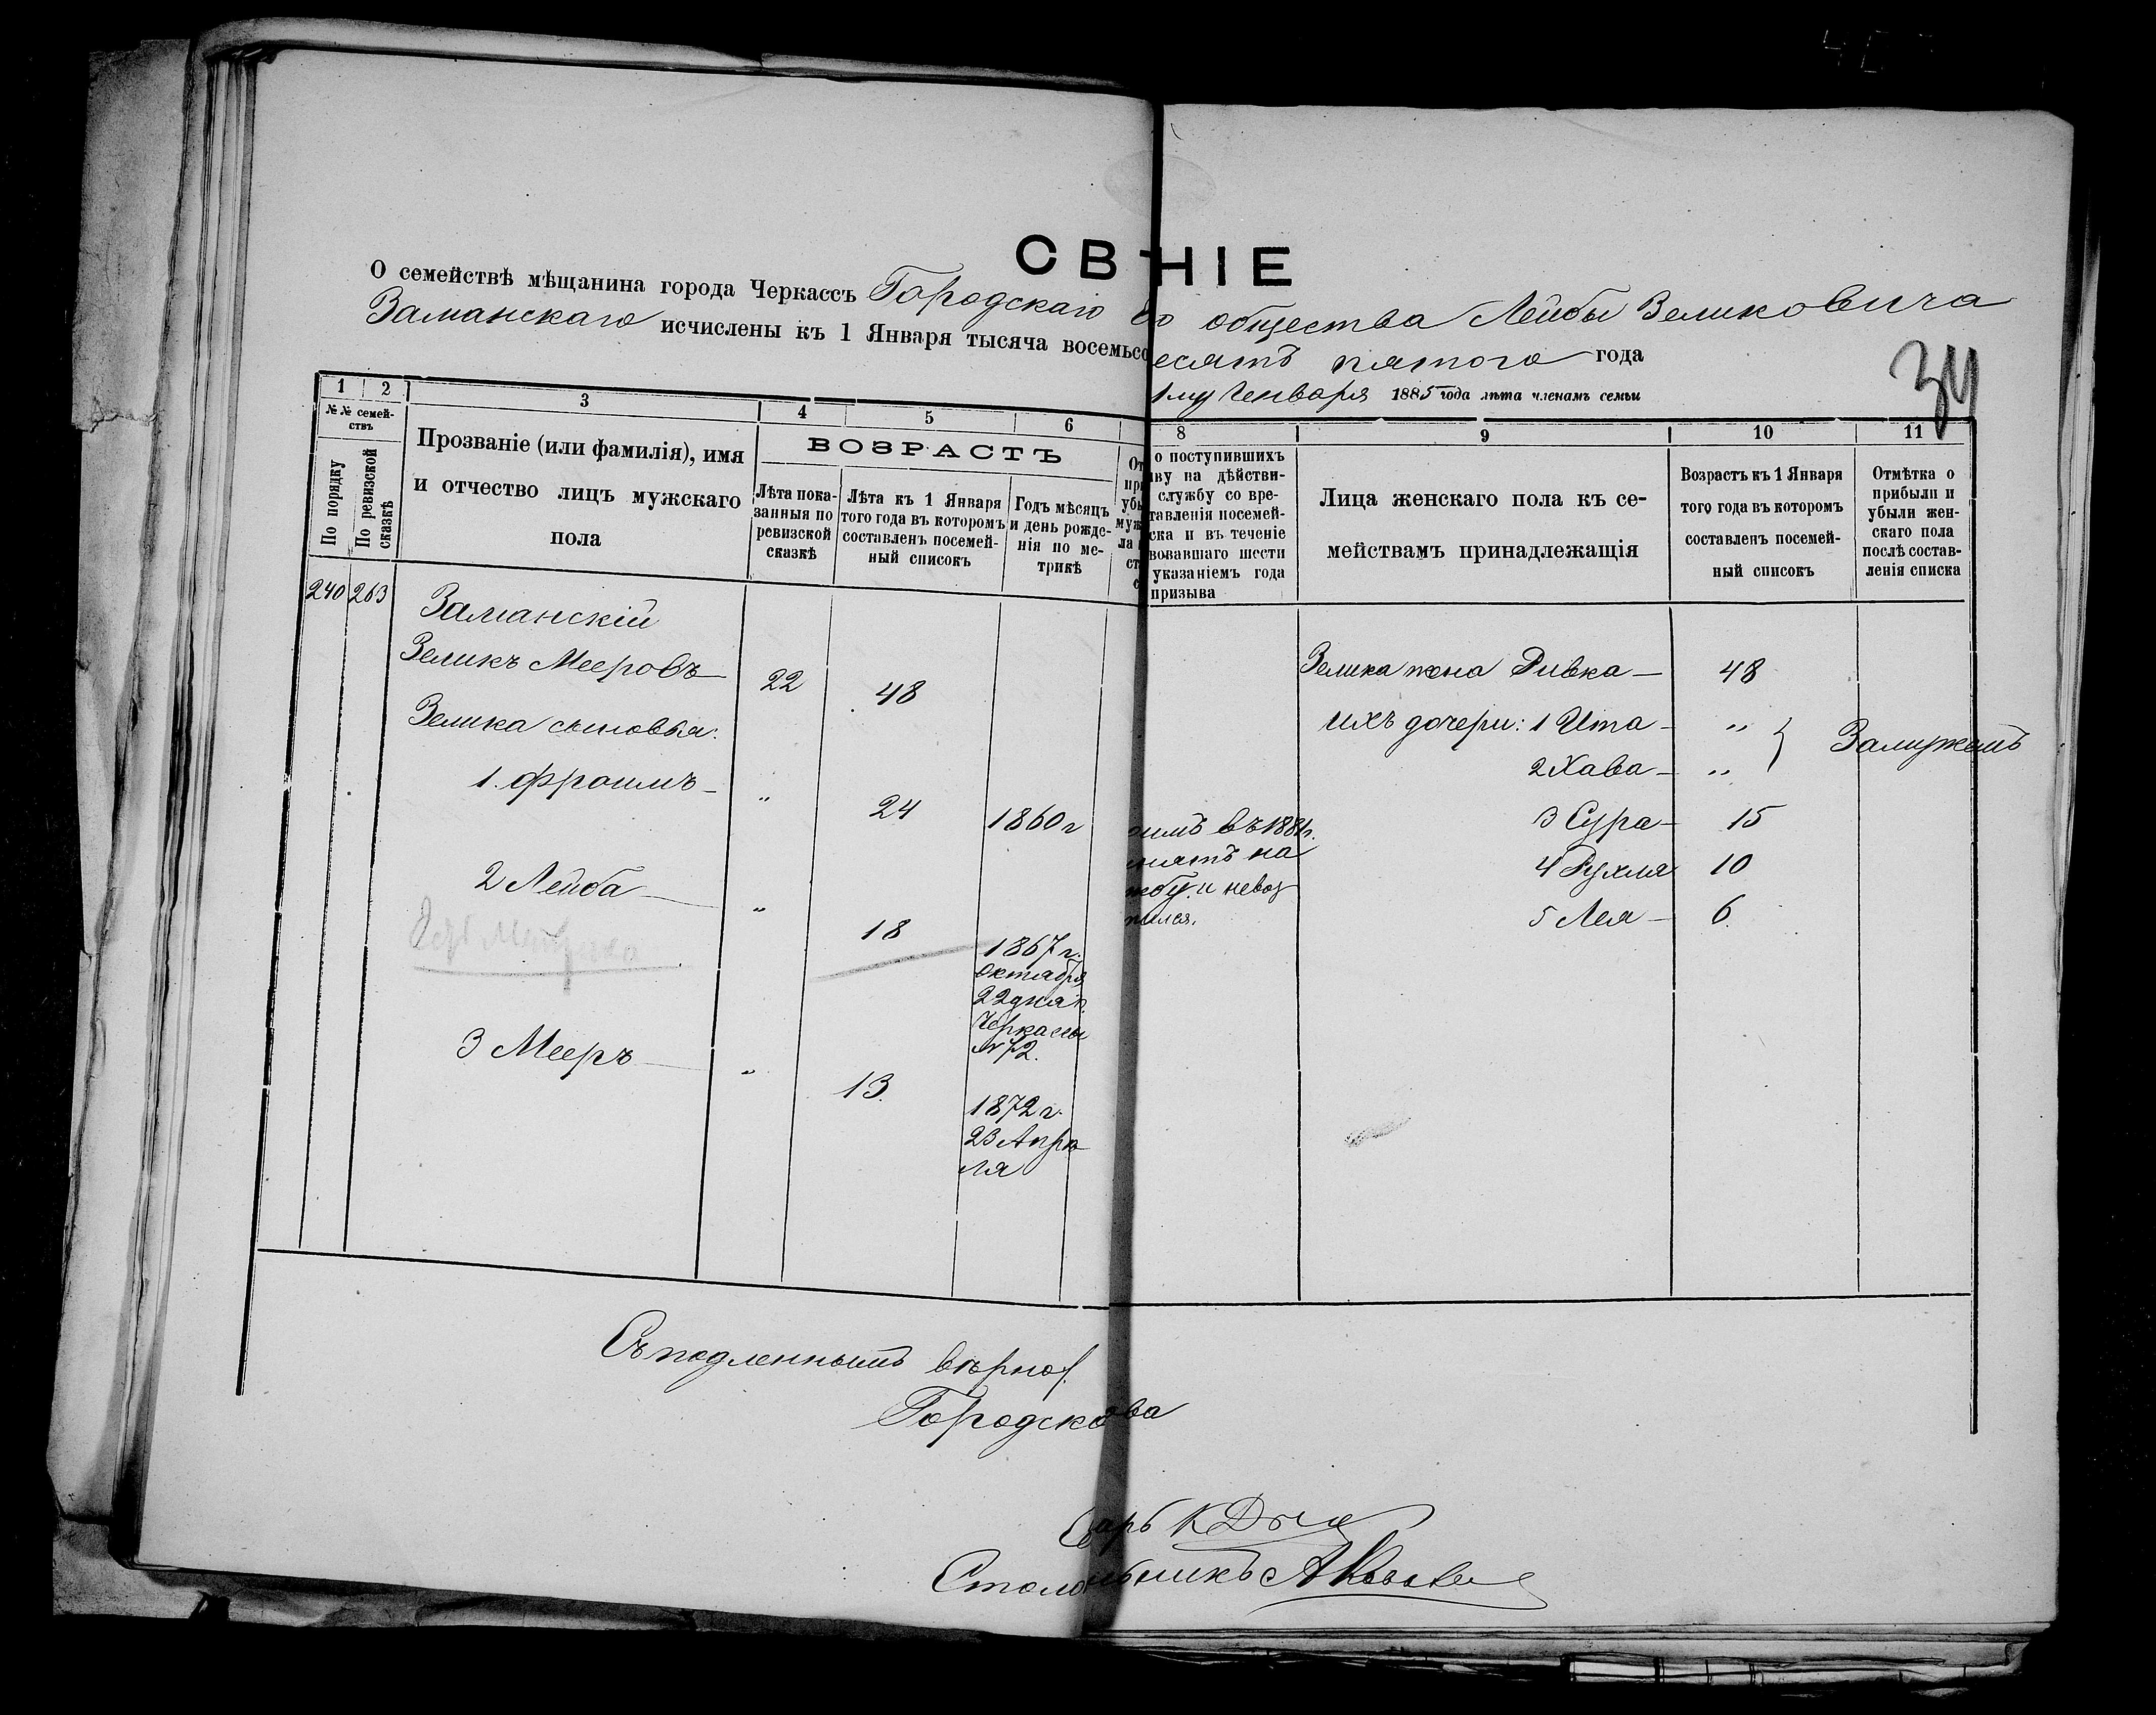 СВ НІЕ
О семействѣ мѣщанина города Черкассъ Городскаго общества Лейбы Зеликовича
Заманскаго исчислены къ 1 Января тысяча восемьсо есятъ пятого года
1му Генваря 1885 года лѣта членамъ семьи
34
1 2 3 4 5 6 8 9 10 11
№№ семействъ
По порядку
По ревизской сказкѣ
Прозваніе (или фамилія), имя
и отчество лицъ мужскаго
пола
ВОЗРАСТЪ
Лѣта пока-
занныя по
ревизской
сказкѣ
Лѣта къ 1 Января
того года въ которомъ
составленъ посемей-
ный списокъ
Годъ мѣсяцъ
и день рожде-
нія по ме-
трикѣ
о поступившихъ
ву на дѣйстви-
службу со вре-
тавленія посемей-
ска и въ теченіе
вовавшаго шести
указаніемъ года
призыва
Лица женскаго пола къ се-
мействамъ принадлежащія
Возрастъ къ 1 Января
того года въ которомъ
составленъ посемей-
ный списокъ
Отмѣтка о
прибыли и
убыли жен-
скаго пола
послѣ состав-
ленія списка
240 263 Заманскій
Зеликъ Мееровъ 22 48
Зелика сыновья:
1. Фроимъ " 24 1860 г
имъ въ 1881г.
нятъ на
жбу и невоз
2 Лейба " 18 1867 г.
Октября
22 дня
Черкассы
№ 72.
3 Мееръ " 13. 1872 г.
23 Апрѣ-
ля
Зелика жена Ривка 48
ихъ дочери: 1 Ита "
2 Хава " Замужемъ
3 Сура 15
4 Рухля 10
5 Лея 6.
Съ подленнымъ вѣрно:
Городск ова
арь К
Столо ьникъ А